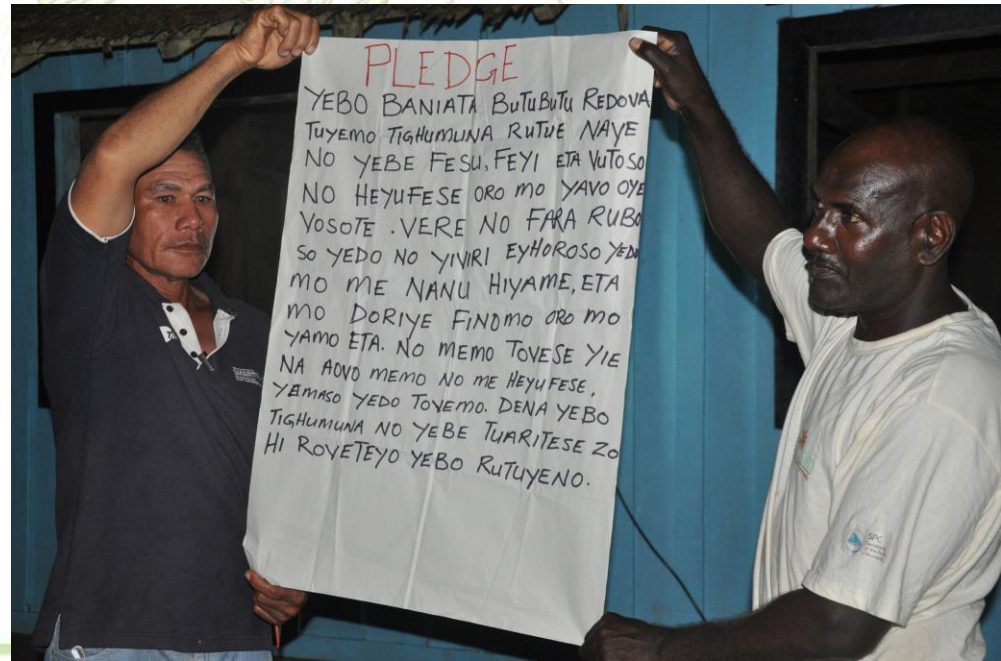 PLEDGE
YEBO BANIATA BUTUBUTU REDOVA
TUYEMO TIGHUMUNA RUTUE NAYE
NO YEBE FESU, FEYI ETA VUTOSO
NO HEYUFESE ORO MO YAVO OYE
VOSOTE. VERE NO FARA RUBO
SO YEDO NO YIVIRI EYHOROSO YEDO
MO ME NANU HIYAME, ETA
MO DORIYE FINOMO ORO MO
YAMO ETA. NO MEMO TOVESE YIE
NA AOVO MEMO NO ME HEYUFESE,
YEMASO YEDO TOVEMO. DENA YEBO
TIGHUMUNA NO YEBE TUARITESE ZO
HI ROVETEYO YEBO RUTUYENO.
SPC